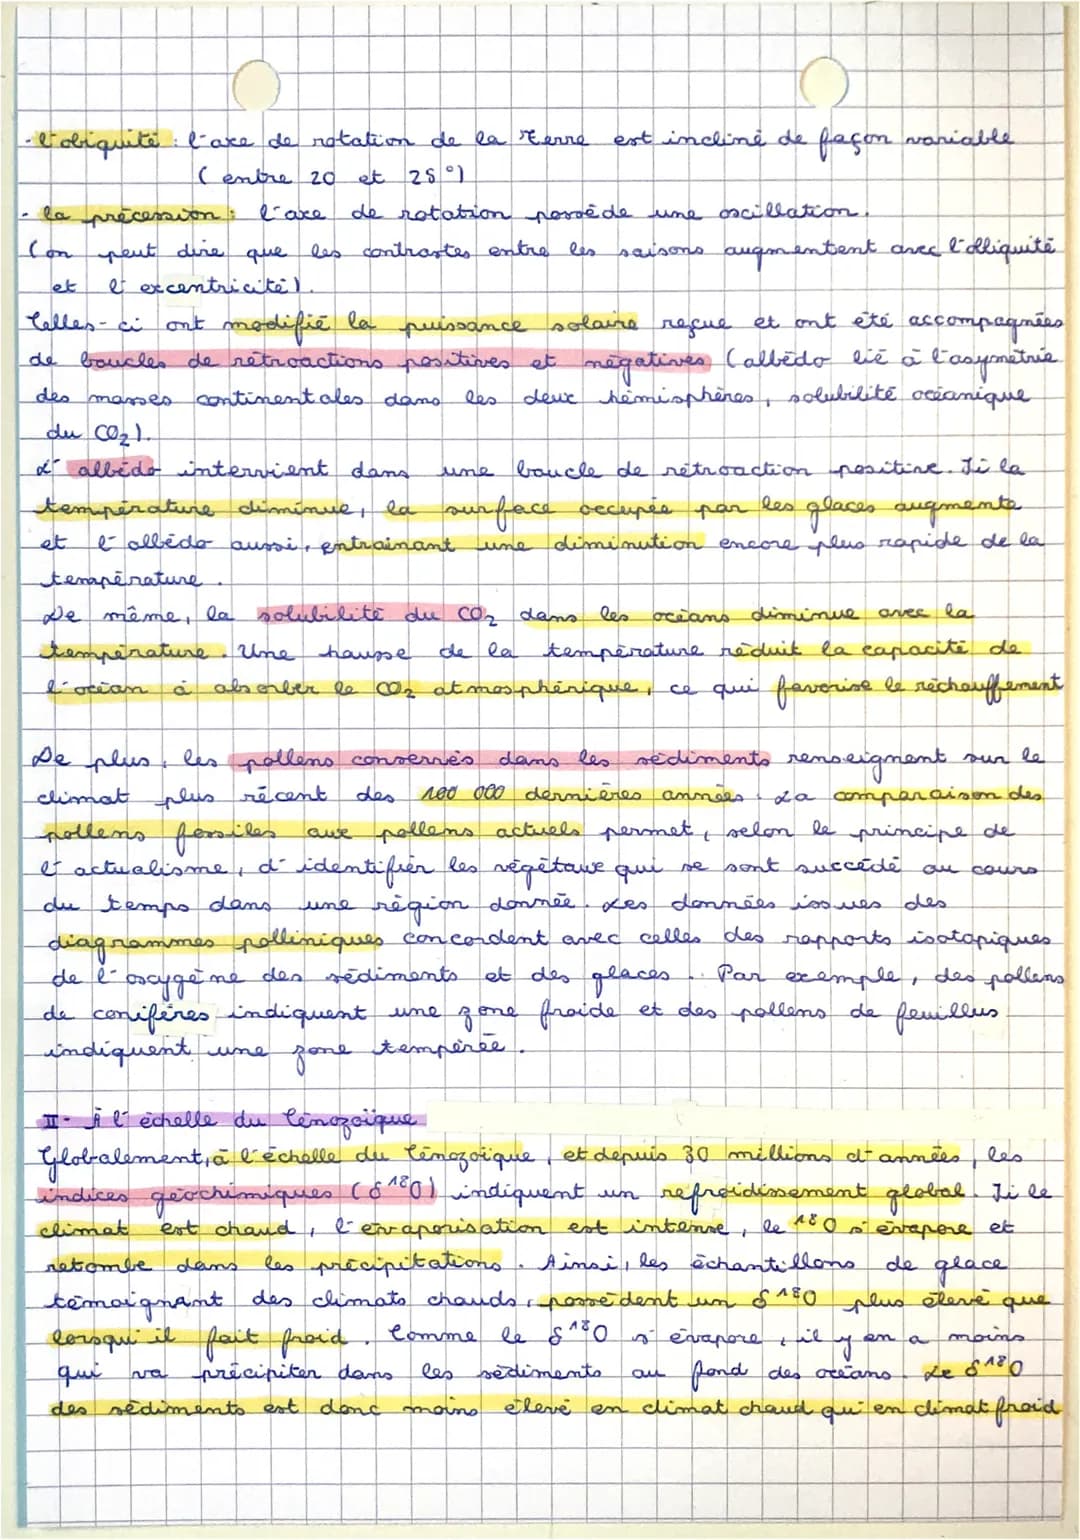 - l'obliquité : l'axe de rotation de la Terre est incliné de façon variable
( entre 20 et 25°)
- la précession : l'axe de rotation possède une oscillation.
(on peut dire que les contrastes entre les saisons augmentent avec l'obliquité
et l'excentricité).
Celles-ci ont modifié la puissance solaire reçue et ont été accompagnées
de boucles de rétroactions positives et négatives (albédo lié à l'asymétrie
des masses continentales dans les deux hémisphères, solubilité océanique
du CO2).
L'albédo intervient dans une boucle de rétroaction positive. Si la
température diminue, la surface occupée par les glaces augmente
et l'albédo aussi, entrainant une diminution encore plus rapide de la
température.
De même, la solubilité du CO2 dans les océans diminue avec la
température. Une hausse de la température réduit la capacité de
l'océan à absorber le CO2 atmosphérique, ce qui favorise le réchauffement
De plus, les pollens conservés dans les sédiments renseignent sur le
climat plus récent des 100 000 dernières années. La comparaison des
pollens fossiles aux pollens actuels permet, selon le principe de
l'actualisme, d'identifier les végétaux qui se sont succédé au cours
du temps dans une région donnée. Les données issues des
diagrammes polliniques concordent avec celles des rapports isotopiques
de l'oxygène des sédiments et des glaces. Par exemple, des pollens
de conifères indiquent une zone froide et des pollens de feuillus
indiquent une zone tempérée.
II- À l'échelle du Cénozoïque
Globalement, à l'échelle du Cénozoïque, et depuis 30 millions d'années, les
indices géochimiques (δ18O) indiquent un refroidissement global. Si le
climat est chaud, l'évaporisation est intense, le 18O s'évapore et
retombe dans les précipitations. Ainsi, les échantillons de glace
témoignant des climats chauds, possèdent un δ18O plus élevé que
lorsqu'il fait froid. Comme le δ18O s'évapore, il y en a moins
qui va précipiter dans les sédiments au fond des océans. Le δ18O
des sédiments est donc moins élevé en climat chaud qu'en climat froid